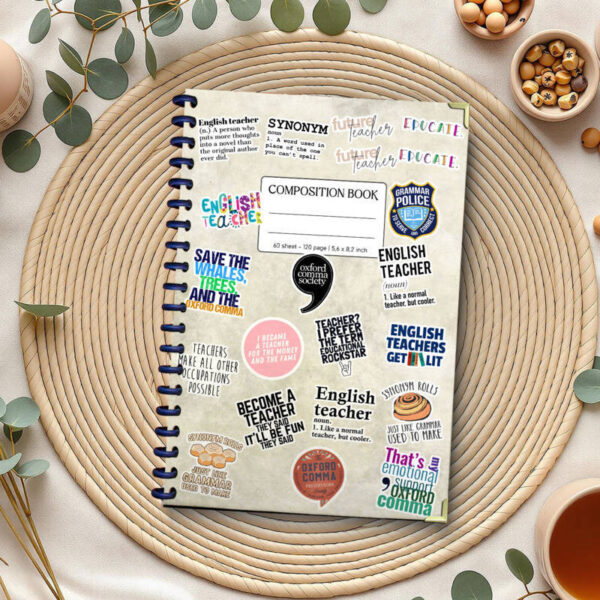 English teacher
(n.) A person who
puts more thoughts
into a novel than
the original author
ever did.
SYNONYM
noun
1. A word used in
place of the one
you can't spell.
future
teacher
EDUCATE.
future
teacher
EDUCATE.
ENGLISH
TEACHER
COMPOSITION BOOK
60 sheet - 120 page | 5,6 x 8,2 inch
GRAMMAR
POLICE
TO SERVE AND CORRECT
SAVE THE
WHALES,
TREES,
AND THE
OXFORD COMMA
oxford
comma
society
ENGLISH
TEACHER
(noun)
1. Like a normal
teacher, but cooler.
TEACHERS
MAKE ALL OTHER
OCCUPATIONS
POSSIBLE
I BECAME
A TEACHER
FOR THE MONEY
AND THE FAME
TEACHER?
I PREFER
THE TERM
EDUCATIONAL
ROCKSTAR
ENGLISH
TEACHERS
GET LIT
BECOME A
TEACHER
THEY SAID
IT'LL BE FUN
THEY SAID
English
teacher
noun.
1. Like a normal
teacher, but cooler.
SYNONYM ROLLS
JUST LIKE GRAMMAR
USED TO MAKE
SYNONYM ROLLS
JUST LIKE
GRAMMAR
USED TO MAKE
OXFORD
COMMA
That's my
emotional
support
OXFORD
comma